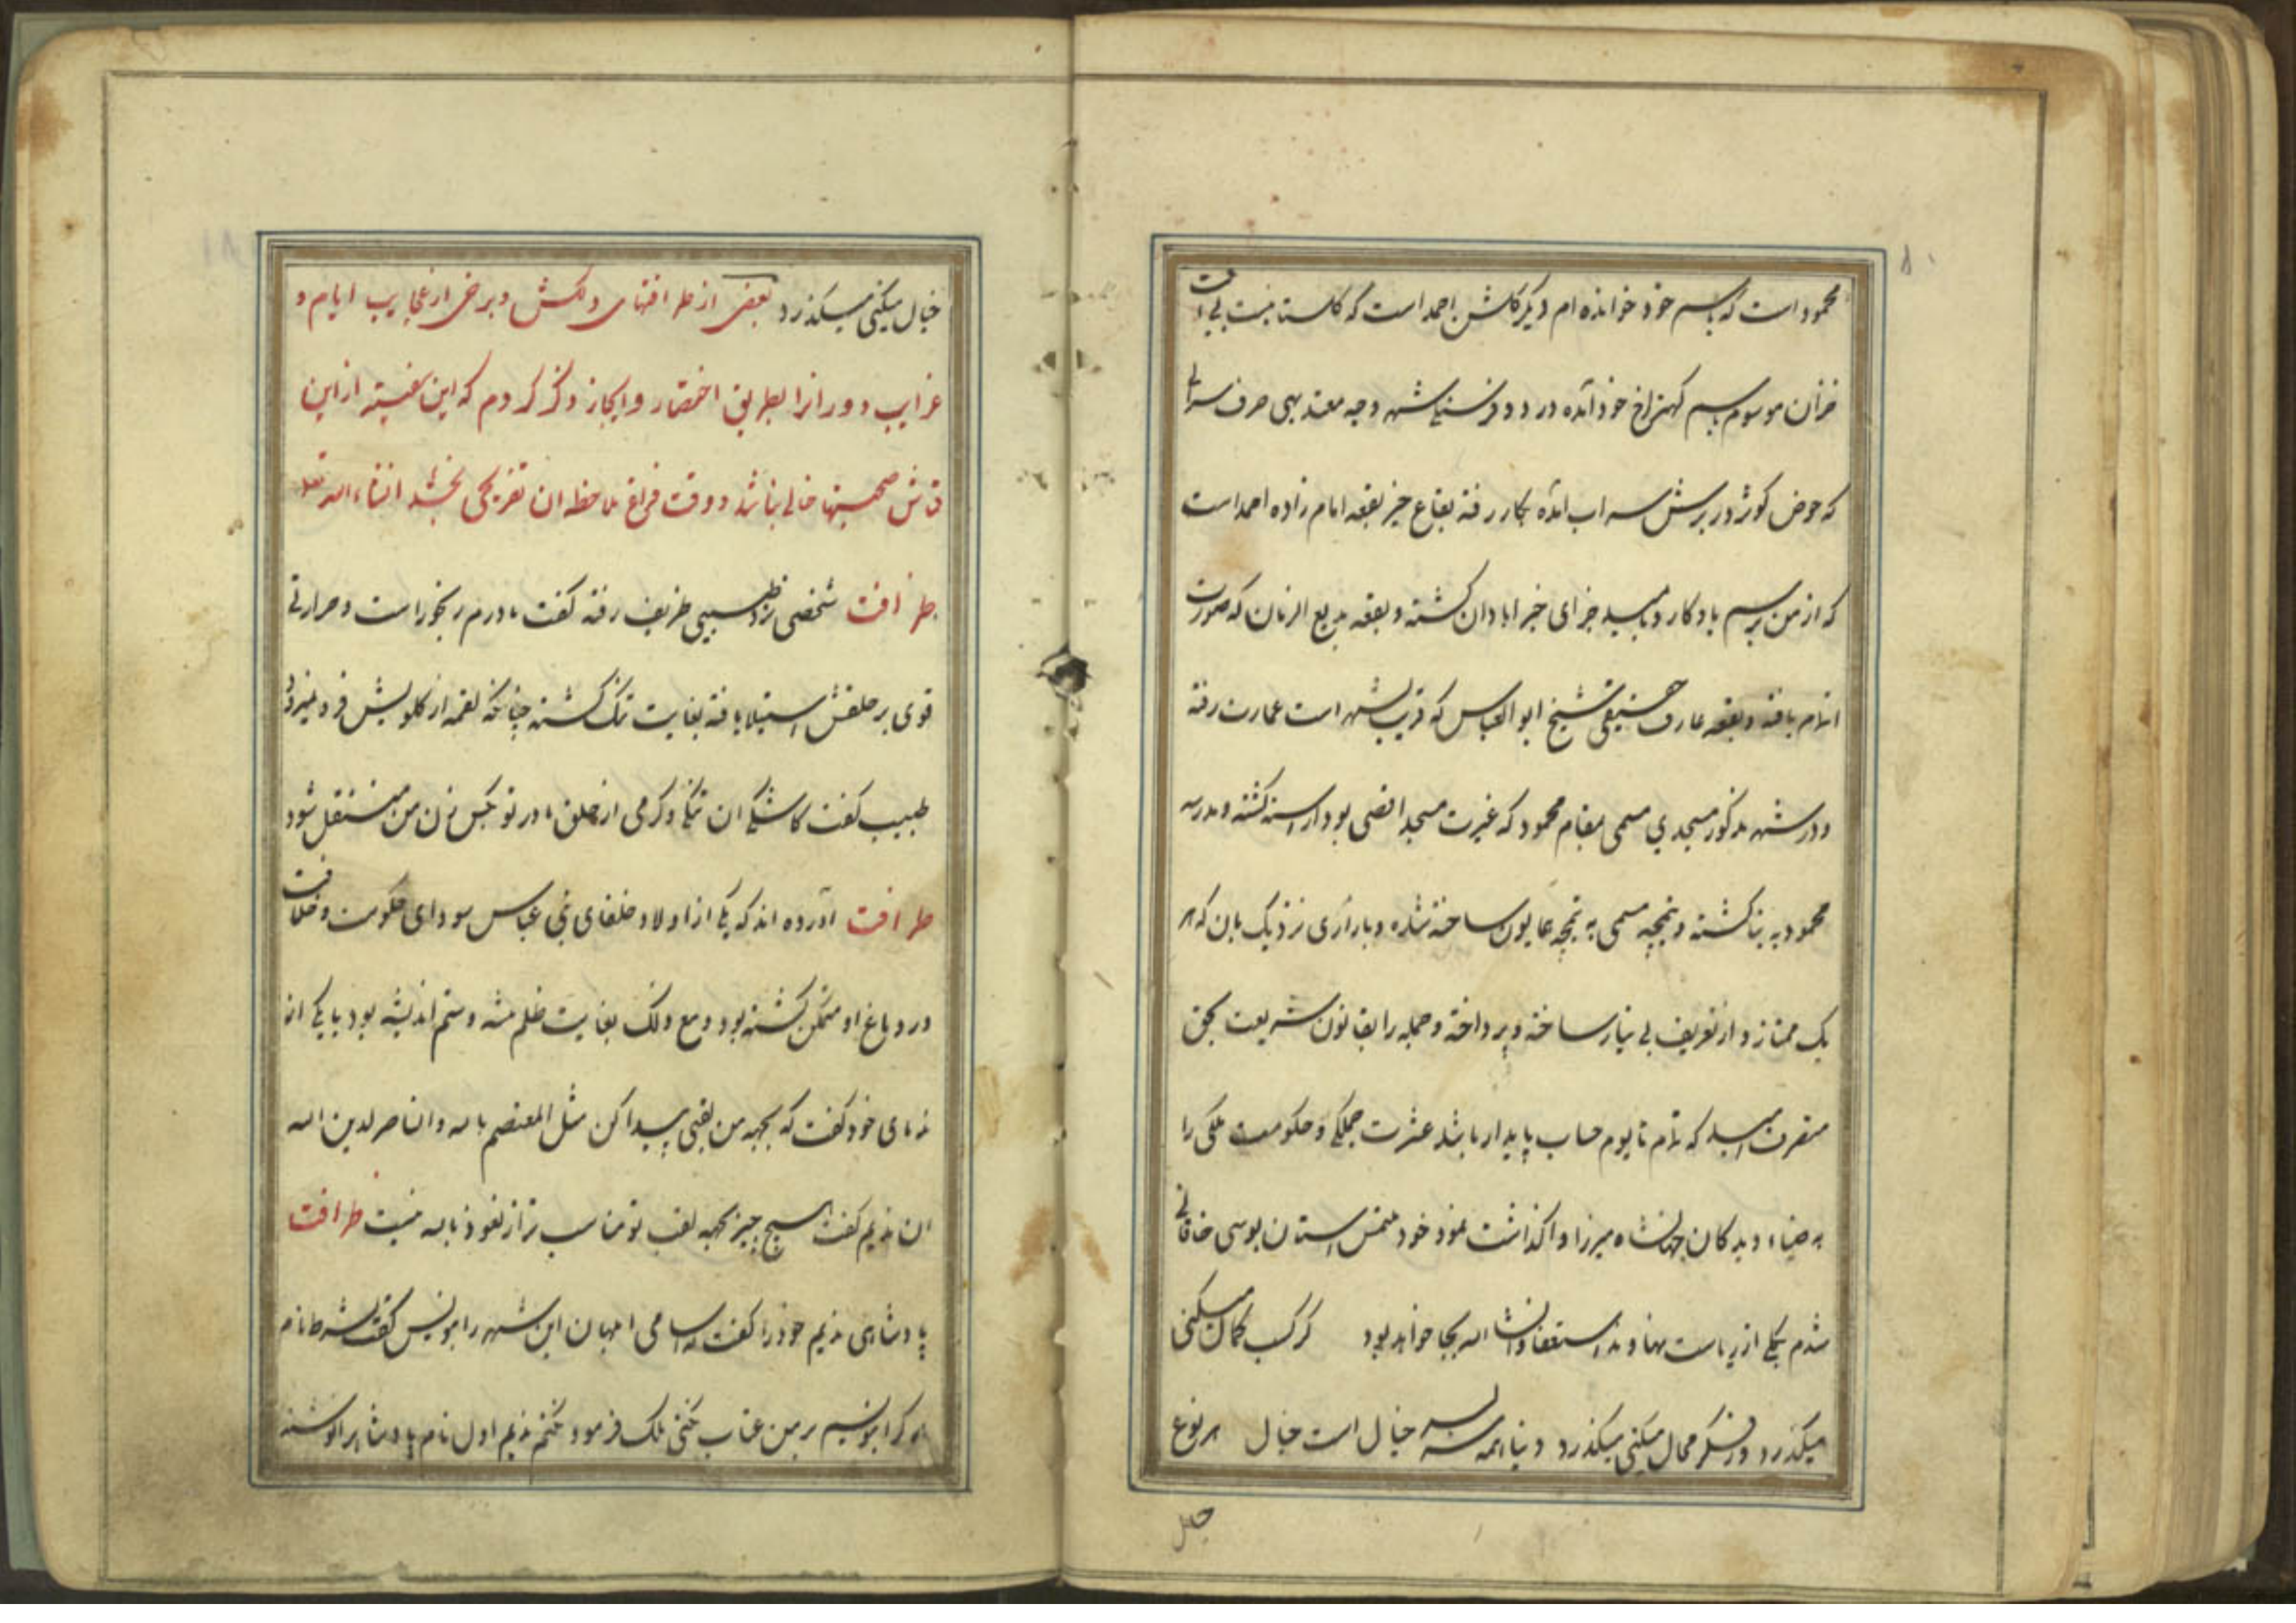 محمود است که باسم خود خوانده ام دیگر کلشن احمد است که کلستانیست بی افت
خزان موسوم باسم کهتراخ خود آمده در دو فرسنکی شهر و جه معتد بهی صرف سرابی
که حوض کوثر در برش سراب آمده بکار رفته بقاع خیر بقعه امام زاده احمد است
که از من برسم یادکار و بامید جزای خیر ابادان کشته و بقعه بدیع الزمان که صورت
اتمام یافته و بقعه عارف حقیقی شیخ ابو العباس که قریب بشهر است عمارت رفته
و در شهر مذکور مسجدی مسمی بمقام محمود که غیرت مسجد اقصی بود اراسته کشته و مدرسه
محمودیه بنا کشته و تیمچه مسمی به تیمچه همایون ساخته شده و بازاری نزدیک بان که هر
یک ممتاز و از تعریف بی نیاز ساخته و پرداخته و جمله را بقانون شریعت بحق
متصرف امید که تمام تا یوم حساب پایدار باشد عشرت جملکی و حکومت ملکی را
به ضیاء دیدکان جهانشاه میرزا واکذاشت نمود خود ملتمس استان بوسی خاقانی
شدم یکی از ریاست نهاوند استعفا و انشا الله بجا خواهد بود کر کسب کمال میکنی
میکذرد ور فکر محال میکنی میکذرد دنیا همه سر بسر خیال است خیال هر نوع
خیال میکنی میکذرد بعضی از ظرافتهای دلکش و برخی از عجایب ایام و
غرایب دورانرا بطریق اختصار و ایجاز ذکر کردم که این سفینه از این
قماش صحبتها خالی نباشد و وقت فراغ ملاحظه ان تفریحی بخشد انشاء الله تعالی
ظرافت شخصی نزد طبیبی ظریف رفته کفت مادرم رنجور است و حرارتی
قوی بر حلقش استیلا یافته بغایت تنک کشته چنانکه لقمه از کلویش فرو نمیرود
طبیب کفت کاشکی ان تنکی و کرمی از حلق مادر تو بکس زن من منتقل شود
ظرافت آورده اند که یکی از اولاد خلفای بنی عباس سودای حکومت و خلافت
در دماغ او متمکن کشته بود و مع ذلک بغایت ظلم پیشه و ستم اندیشه بود با یکی از
ندمای خود کفت که بجهه من لقبی پیدا کن مثل المعتصم بالله و الناصر لدین الله
ان ندیم کفت هیچ چیز بجهه لقب تو مناسب تر از نعوذ بالله نیست ظرافت
پادشاهی ندیم خود را کفت که اسامی ابلهان این شهر را بنویس کفت بشرطانکه نام
هر کرا بنویسم بر من عتاب نکنی ملک فرمود نکنم ندیم اول نام پادشاه را نوشته